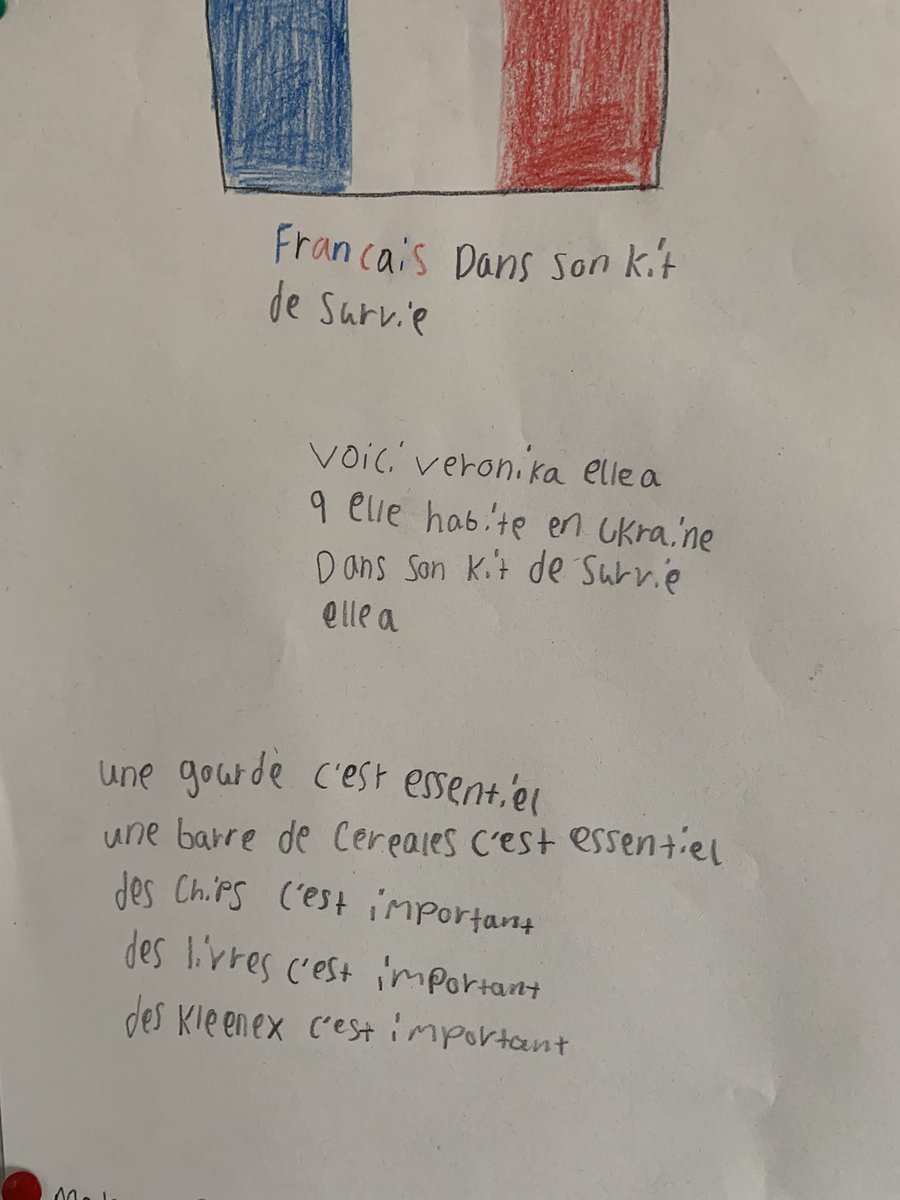 Francais Dans son kit
de survie
voici veronika elle a
9 elle habite en Ukraine
Dans son kit de survie
elle a
une gourde c'est essentiel
une barre de cereales c'est essentiel
des chips c'est important
des livres c'est important
des Kleenex c'est important